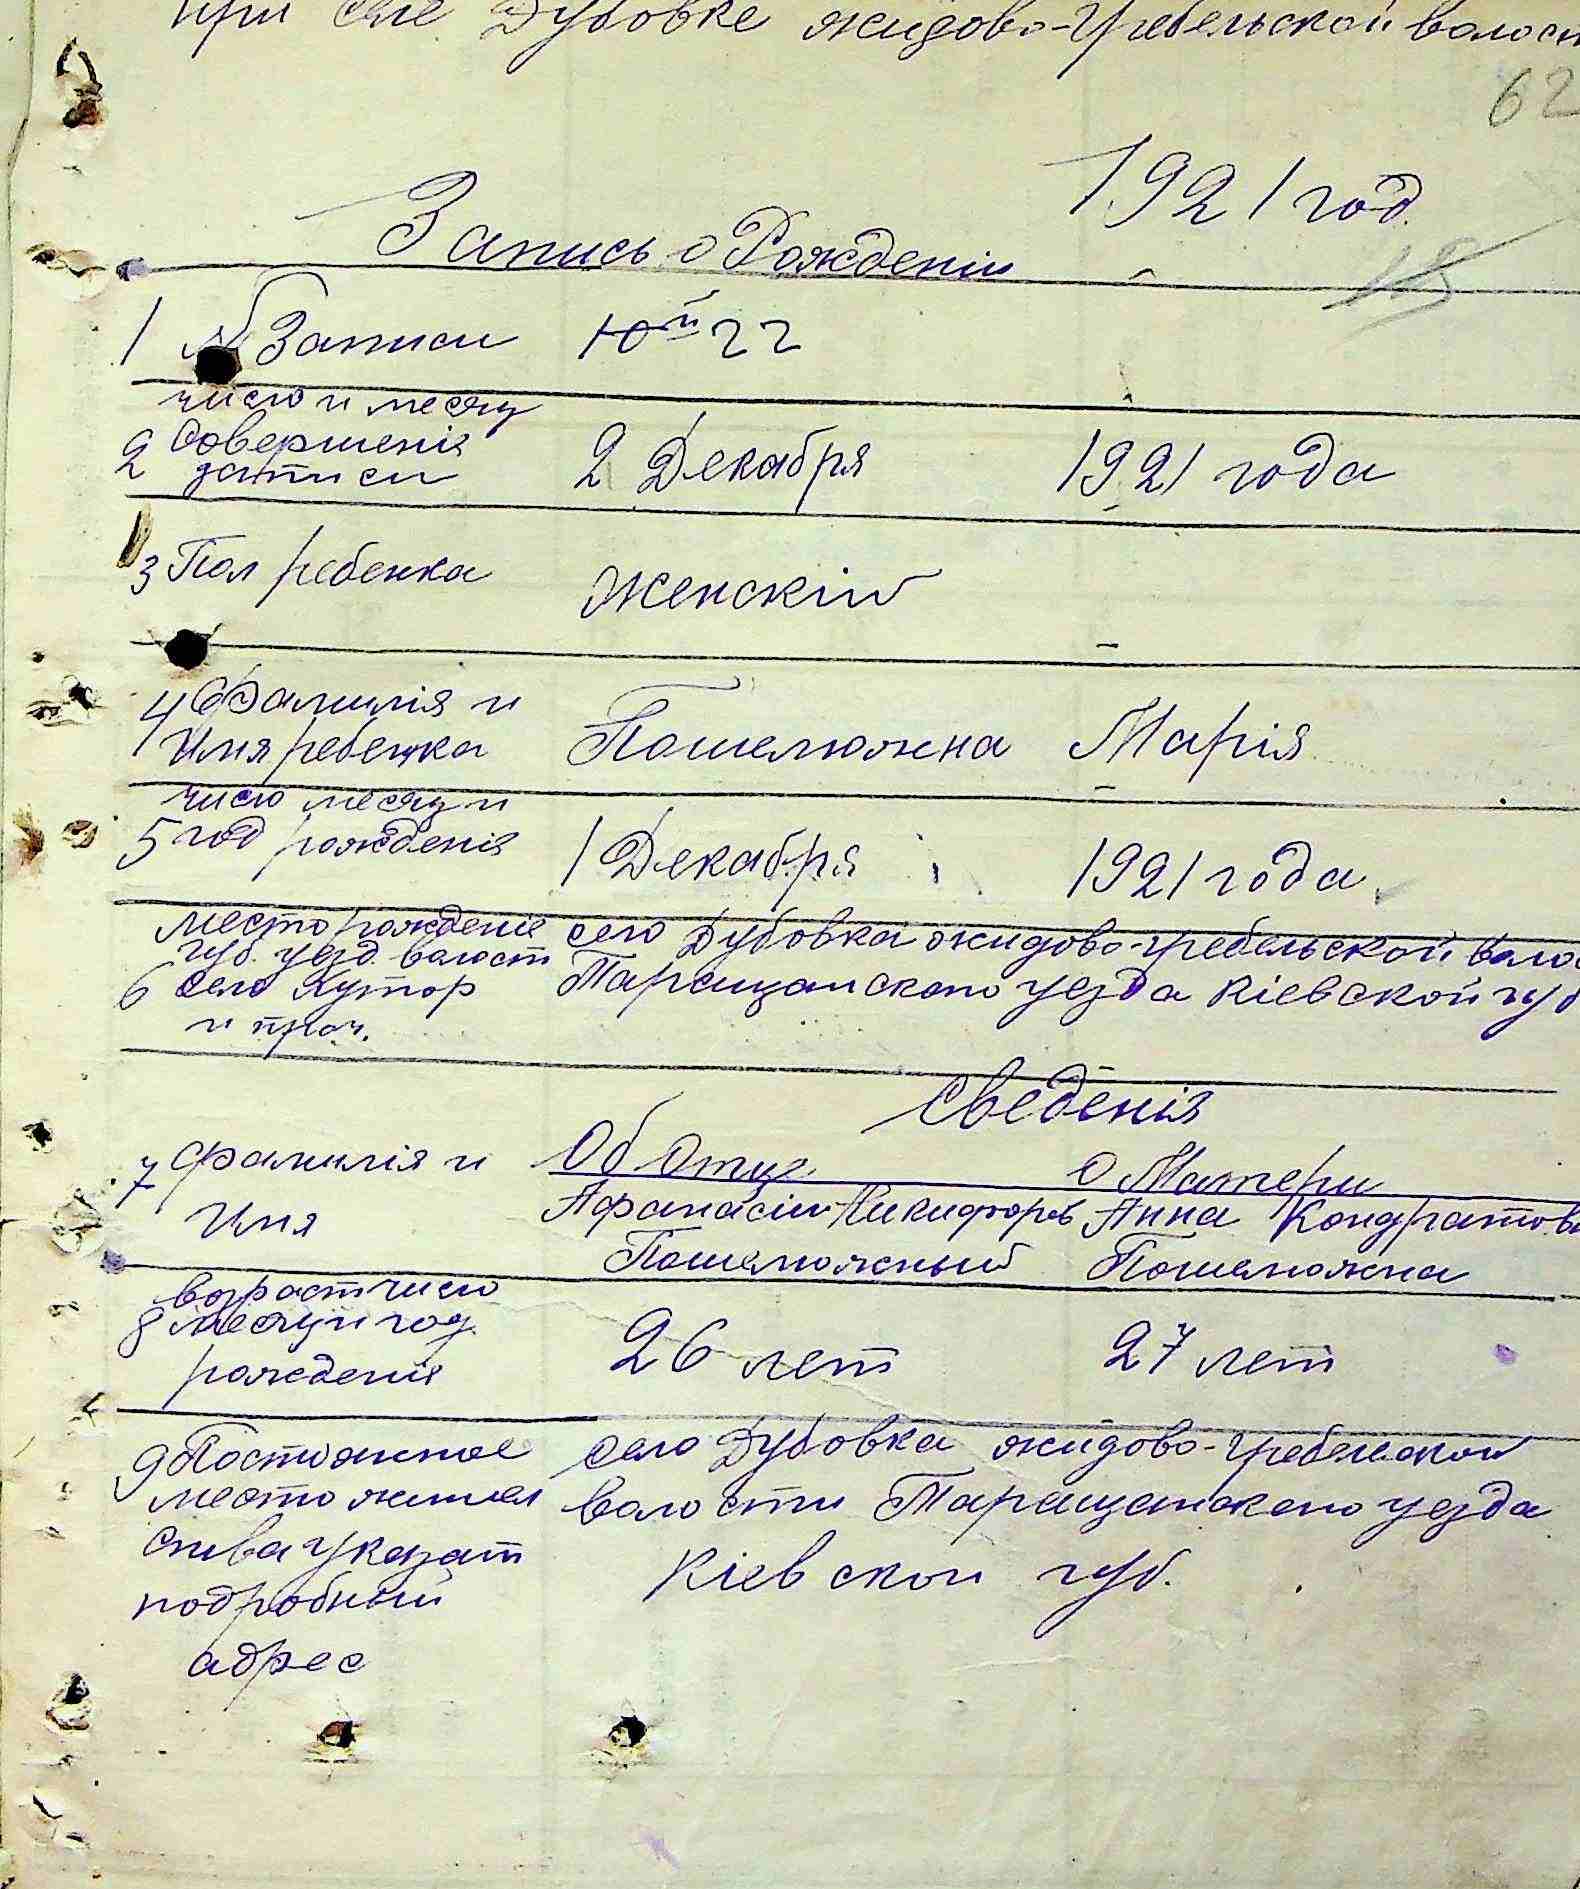 при селе Дубовке жидово-Гребельской волост
62
1921 год.
Запись о Рожденіи
1 № Записи 10й 22
число и месяц
2 Совершенія 2 Декабря 1921 года
записи
3 Пол ребенка Женскій
4 Фамилія и
Имя ребенка Пошелюжна Марія
число месяц и
5 год рожденія 1 Декабря 1921 года
место рожденіе село Дубовка жидово-гребельской воло
губ. уезд. волост Таращанского уезда Кіевской губ
6 село Хутор
и проч.
Сведенія
7 Фамилія и Об Отце О Матери
Имя Афанасій Никифоров Анна Кондратов
Пошелюжный Пошелюжна
возраст число
8 месяц и год 26 лет 27 лет
рожденія
9 Постоянное село Дубовка жидово-гребельской
место жител волости Таращанского уезда
ства указат Кіевской губ.
подробный
адрес